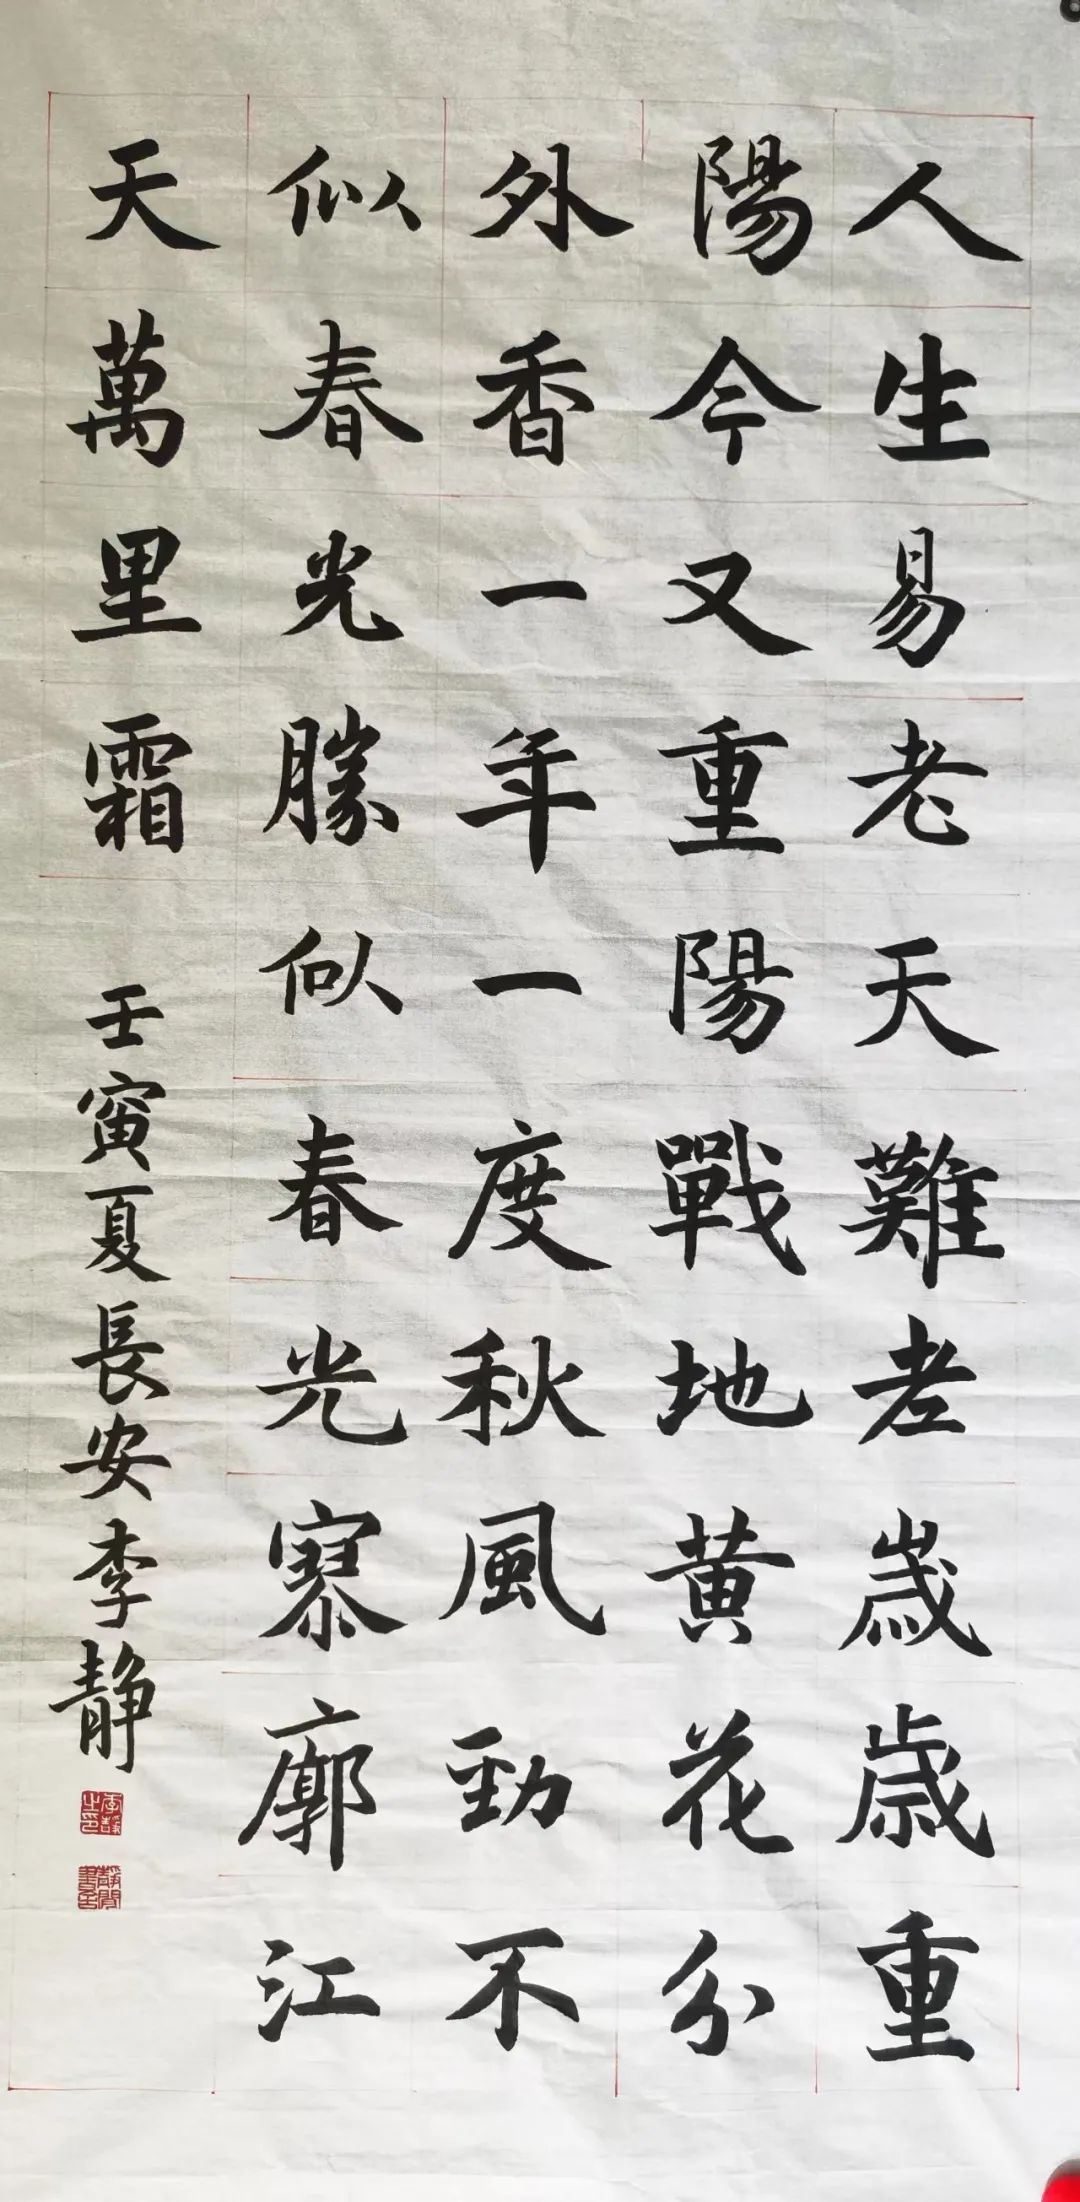 人生易老天難老歲歲重
陽今又重陽戰地黄花分
外香一年一度秋風勁不
似春光勝似春光寥廓江
天萬里霜
壬寅夏長安李静
李靜之印